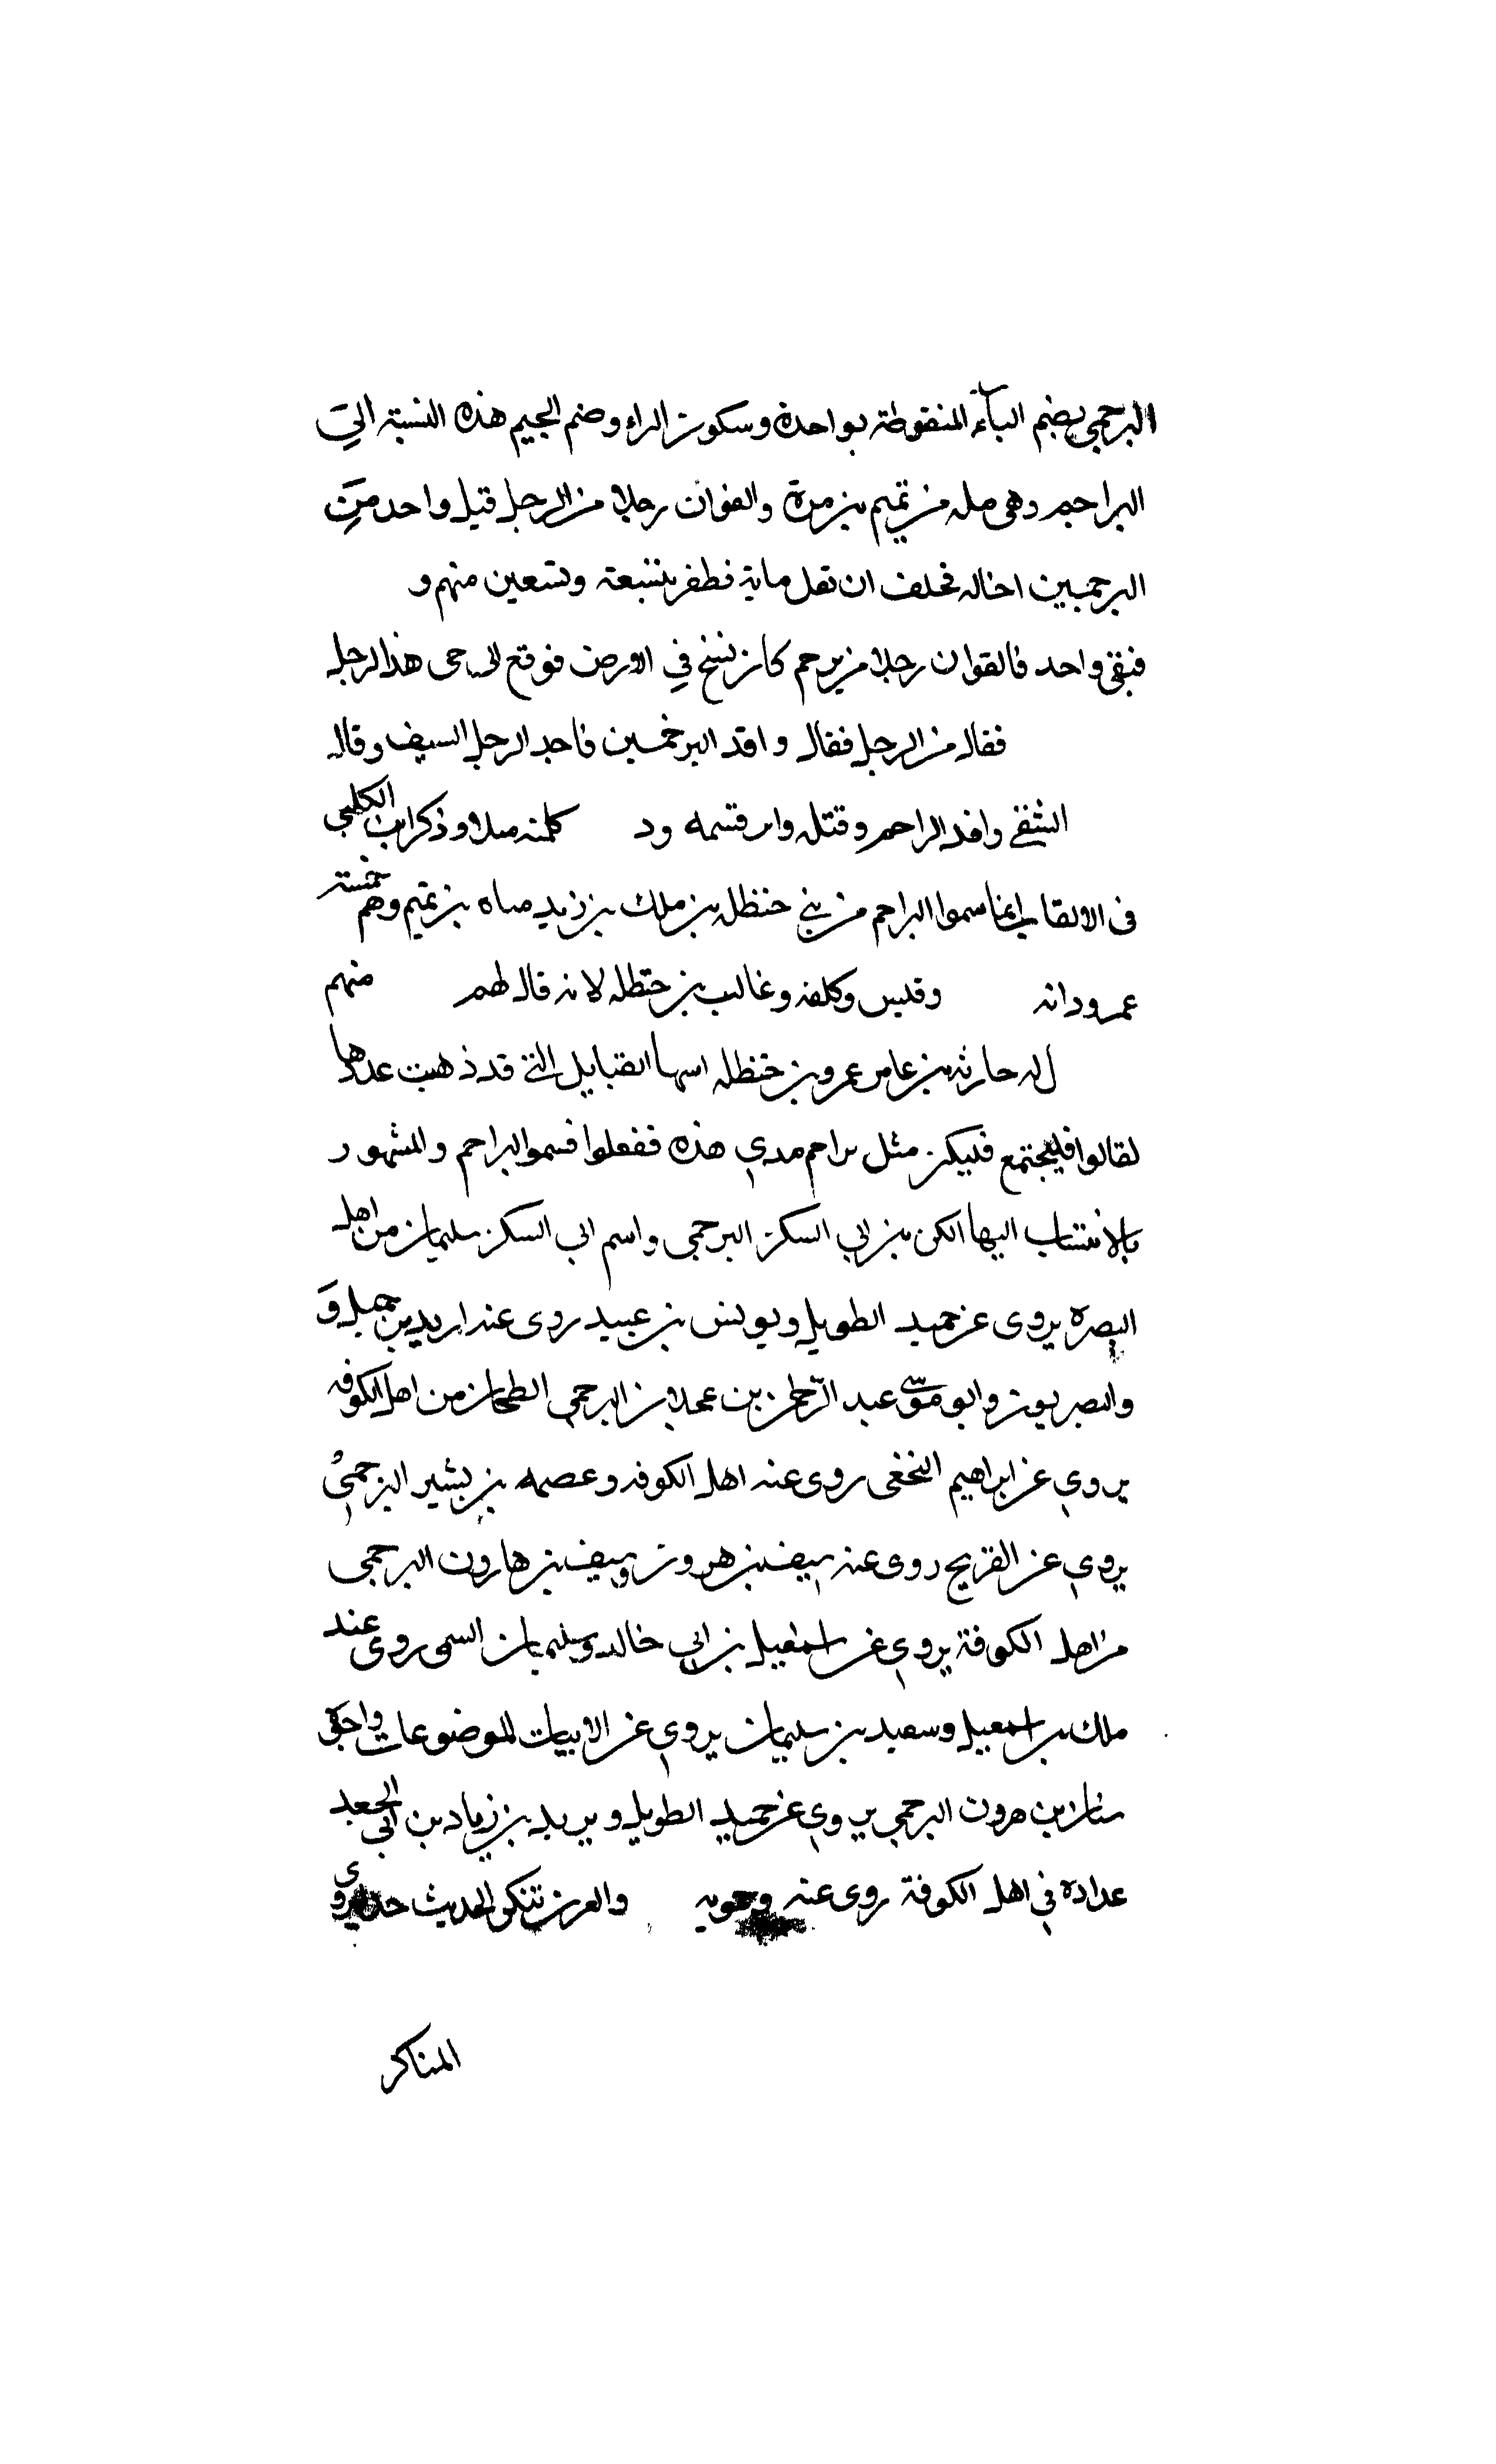 البرجمي بضم الباء المنقوطة بواحدة وسكون الراء وضم الجيم هذه النسبة الى
البراجم وهى من تميم بن مرة والفوان رجلا من الرجل قتيل واحد من
البرجميين اخاله فحلف ان نقل ماية فظفر بتسعة وتسعين منهم و
فبقى واحد فالقوان رجلا من برحم كان نسخ في الارض فوقع الى حى هذا الرجل
فقال من الرجل فقال وافد البرجمين فاخد الرجل السيف وقال
الشقي وافد البراحم وقتله وابر قسمه ود كلمنه مىلا وذكر ابن الكلبي
فى الالقاب انما سموا البراحم من بني حنظله بن ملك بن زيد مناه بن تميم وهم خمسة
عمرو دانه وقيس وكلفه وغالب بن حنظله لانه قال لهم منهم
له حارثه بن عامر عمرو بن حنظله اسها القبايل التي قد ذهبت عددها
لقالوا فليجتمع فليكن مثل براحم مدي هذه ففعلوا فسموا البراحم والمشهور
بالانتساب اليها الكن بن ابي السكن البرجمى واسم ابي السكن سليمان من اهل
البصره يروى عن حميد الطويل ويونس بن عبيد روى عنه ازيد بن جميل و
والبصريون وابو موسى عبد الرحمن بن عجلان البرجمي الطحان من اهل الكوفه
يروي عن ابراهيم النخعى روى عنه اهل الكوفه وعصمه بن بشير البرجمي
يروي عن القريح روى عنه سيف بن هرون وسيف بن هارون البرجمى
من اهل الكوفة يروي عن اسمعيل بن ابي خالد وسليمان التيمى روى عنه
ملك بن اسمعيل وسعيد بن سليمان يروي عن الاثبات الموضوعات واخوه
سنان بن هرون البرجمي يروي عن حميد الطويل ويزيد بن زياد بن ابي الجعد
عداده في اهل الكوفة روى عنه والعرن تنكر الحديث جدا يروي
المناكر